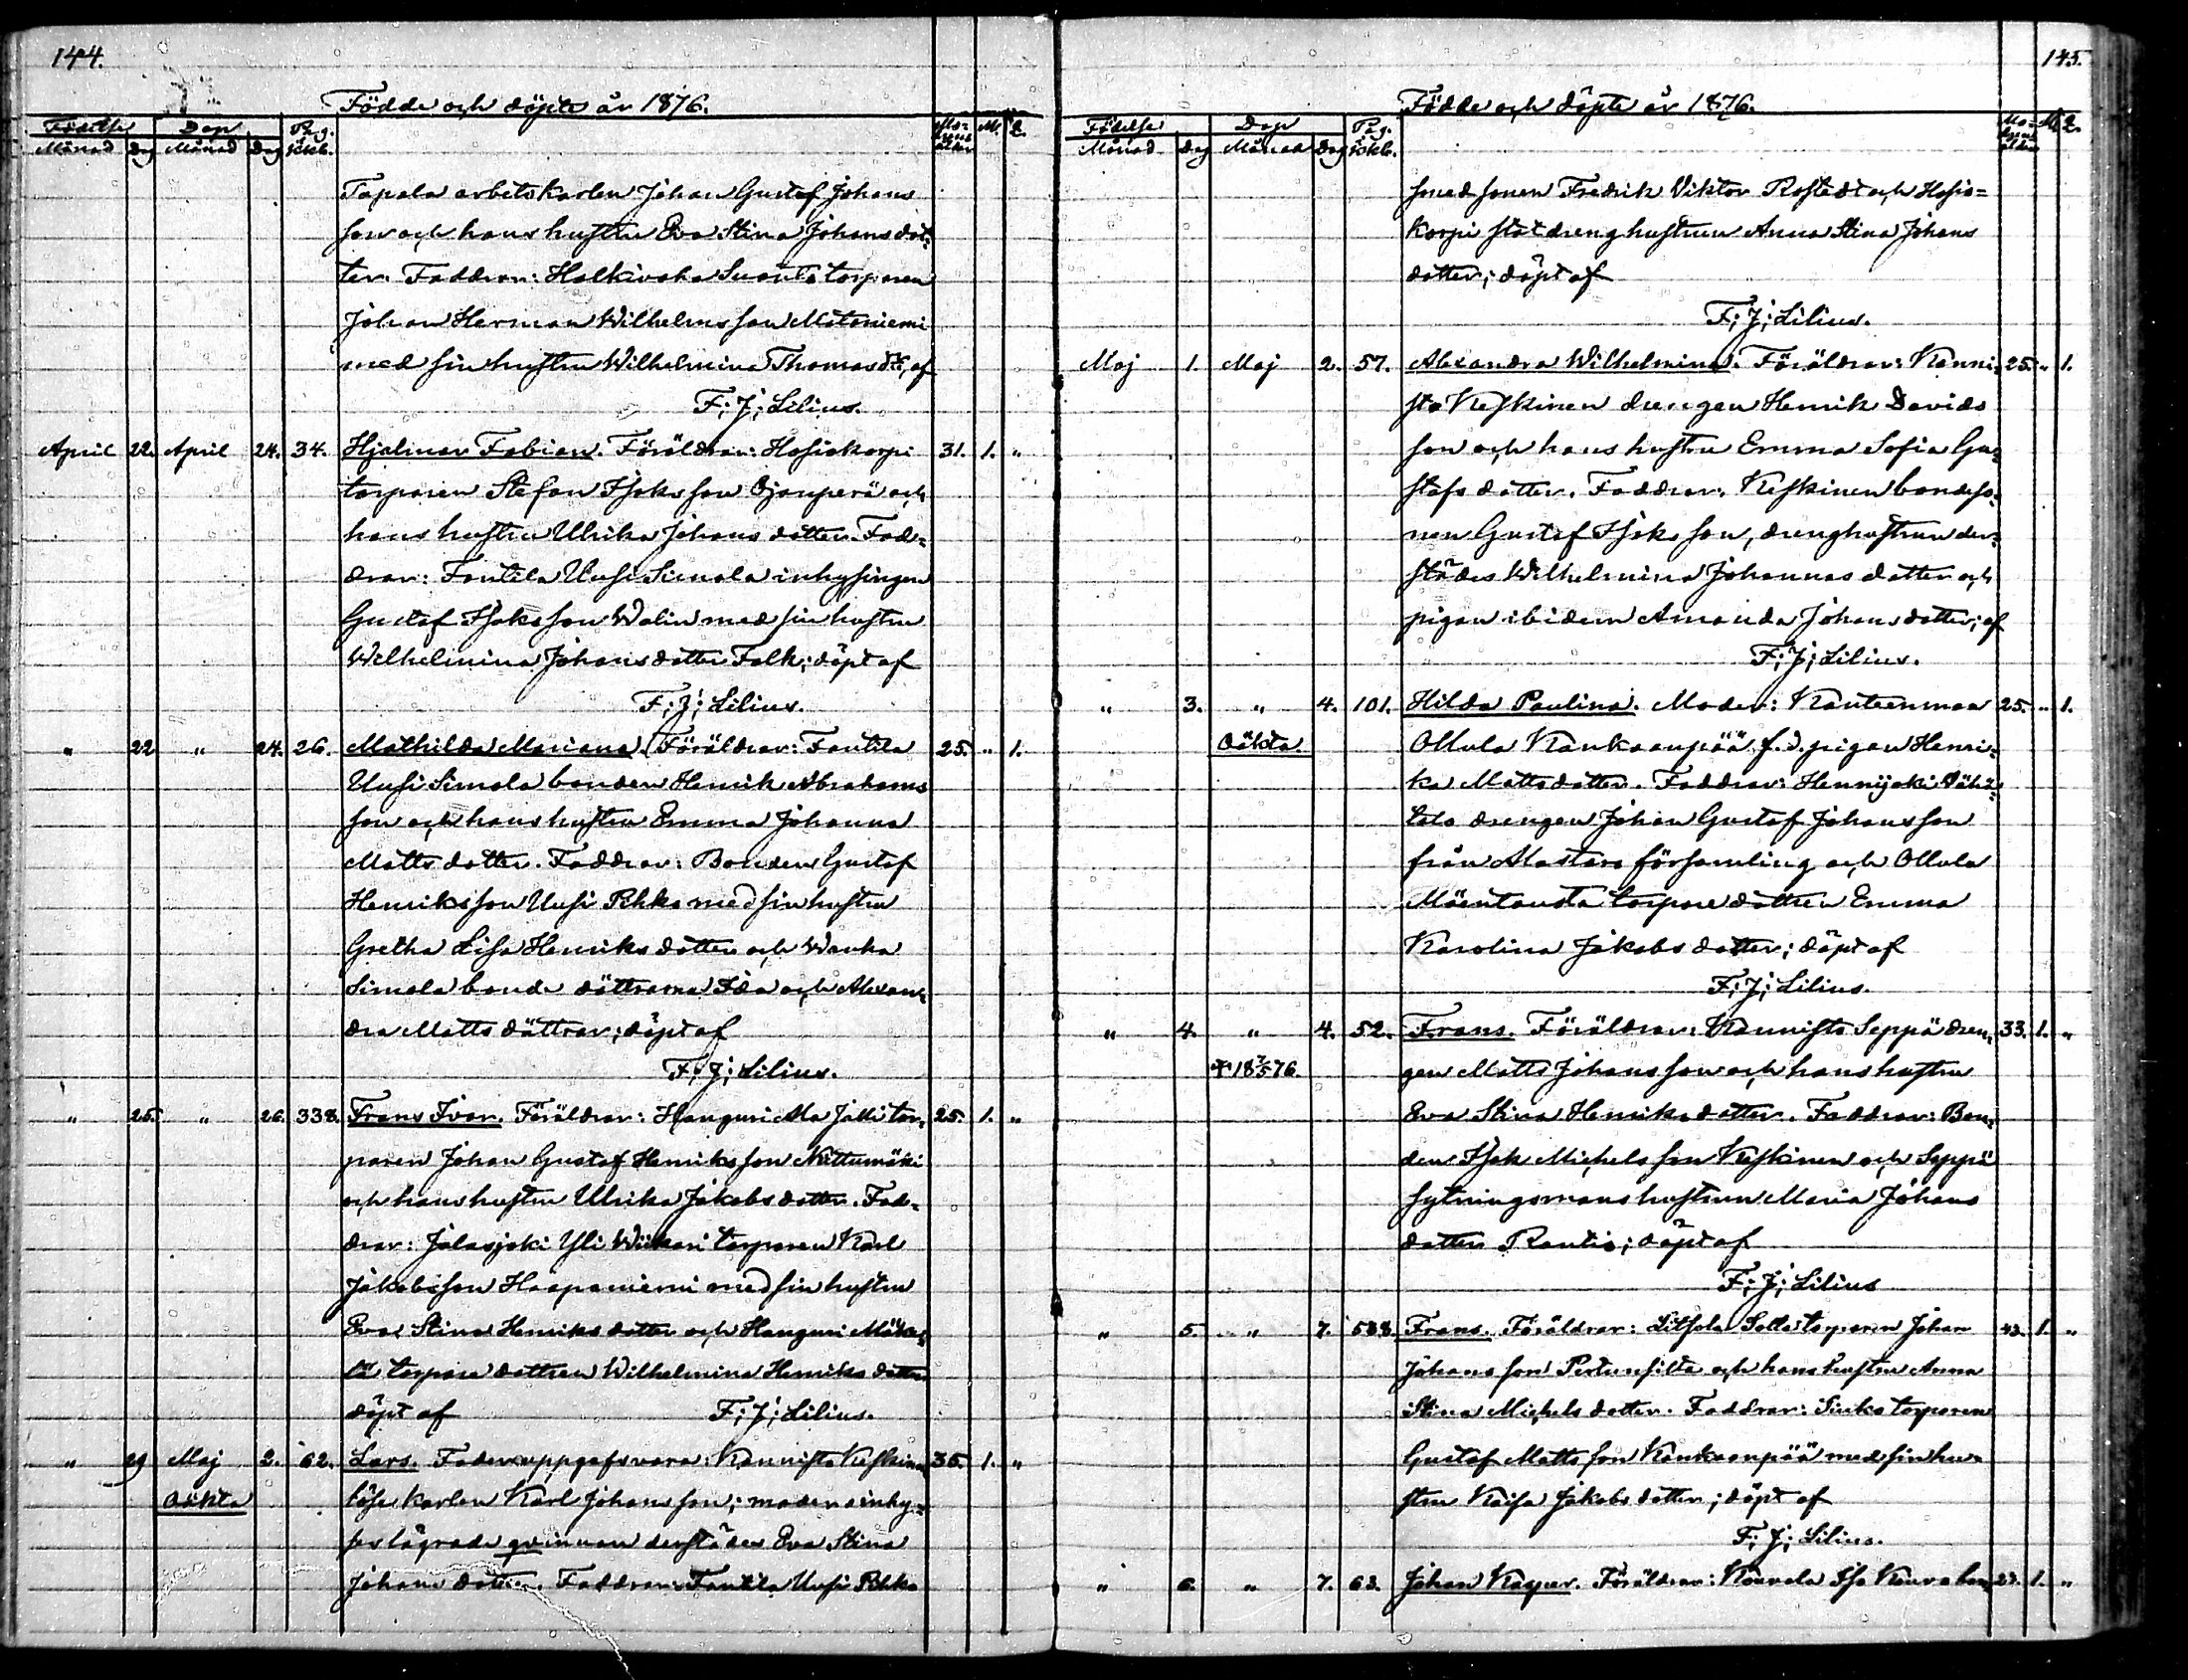 144.
Födde och döpte år 1876.
Födelse Dop Pag. Mo- M. Q.
Månad Dag Månad Dag i kkb. derns ålder
Tapala arbetskarlen Johan Gustaf Johans
son och hans hustru Eva Stina Johansdot-
ter. Faddrar: Halkivaha torparen
Johan Herman Wilhelmsson Mataniemi
med sin hustru Wilhelmina Thomasdtr, af
F; J; Lilius.
April 22. April 24. 34. Hjalmar Fabian. Föräldrar: Hosiokorpi 31. 1. "
torparen Stefan Isaksson Ojanperä och
hans hustru Ulrika Johansdotter. Fad-
drar: Fantila Uusi Simola inhysingen
Gustaf Isaksson Walin med sin hustru
Wilhelmina Johansdotter Falk; döpt af
F; J; Lilius.
" 22 " 24. 26. Mathilda Mariana. Föräldrar: Fantila 25. " 1.
Uusi Simola bonden Henrik Abrahams
son och hans hustru Emma Johanna
Mattsdotter. Faddrar: Bonden Gustaf
Henriksson Uusi Pekko med sin hustru
Gretha Lisa Henriksdotter och Wanha
Simola bonde döttrarna Ida och Alexan-
dra Matts döttrar; döpt af
F; J; Lilius.
" 25. " 26. 338. Frans Ivar. Föräldrar: Hanguri Ala Jalli tor- 25. 1. "
paren Johan Gustaf Henriksson Niittumäki
och hans hustru Ulrika Jakobsdotter. Fad-
drar: Jalasjoki Yli Wiikari torparen Karl
Jakobsson Haapaniemi med sin hustru
Eva Stina Henriksdotter och Hanguri
torpare dottren Wilhelmina Henriksdotter
döpt af F; J; Lilius.
" 29 Maj 2. 62. Lars. Fader uppgafs vara: Kannisto Keskinen 36. 1. "
Oäkta löse karlen Karl Johansson; moder inhy-
ses lägrade qvinnan derstädes Eva Stina
Johansdotter. Faddrar: Fantila Uusi Pekko
145.
Födde och döpte år 1876.
Födelse Dop Pag. Mo- M. Q.
Månad Dag Månad Dag i kkb. derns ålder
smedsonen Fredrik Viktor Rostedt och Hosio-
korpi statdrenghustrun Anna Stina Johans
dotter; döpt af
F; J; Lilius.
Maj 1. Maj 2. 57. Alexandra Wilhelmina. Föräldrar: Kanni- 25. " 1.
sto Keskinen drengen Henrik Davids
son och hans hustru Emma Sofia Gu-
stafsdotter. Faddrar: Keskinen bondeso-
nen Gustaf Isaksson, drenghustrun der-
städes Wilhelmina Johannasdotter och
pigan ibidem Amanda Johansdotter; af
F; J; Lilius.
" 3. " 4. 101. Hilda Paulina. Moder: Kanteenmaa 25. " 1.
Oäkta Ollula Kankaanpää f. d. pigan Henri-
ka Mattsdotter. Faddrar: Hennijoki Vähä-
talo drengen Johan Gustaf Johansson
från Alastaro församling och Ollula
Mäentausta torpare dottren Emma
Karolina Jakobsdotter; döpt af
F; J; Lilius.
" 4. " 4. 52. Frans. Föräldrar: Kannisto Seppä dren- 33. 1. "
† 18 7/5 76. gen Matts Johansson och hans hustru
Eva Stina Henriksdotter. Faddrar: Bon-
den Isak Michelsson Keskinen och Seppä
sytningsmanshustrun Maria Johans
dotter Rantio; döpt af
F; J; Lilius
" 5. " 7. 588 Frans. Föräldrar: torparen Johan 43. 1. "
Johansson och hans hustru Anna
Stina Michelsdotter. Faddrar: torparen
Gustaf Mattsson Kankaanpää med sin hu-
stru Kaisa Jakobsdotter; döpt af
F; J; Lilius.
" 6. " 7. 63. Johan Kasper. Föräldrar: Kouvola Iso 27. 1. "